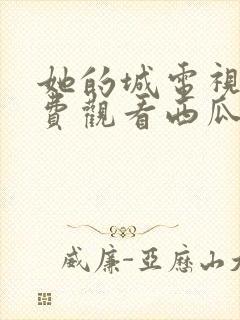 她的城電視
費觀看西瓜
威廉-亞歷山大